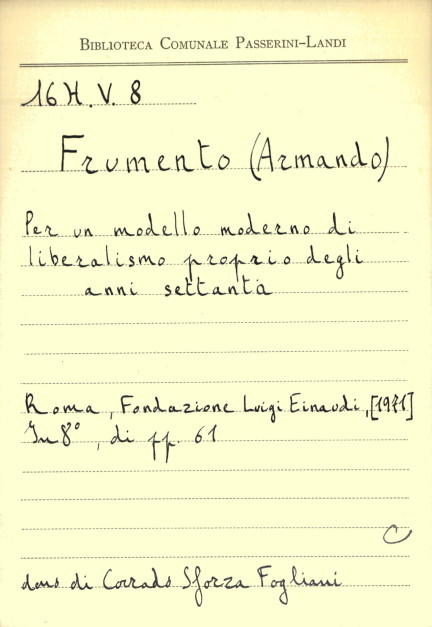 BIBLIOTECA COMUNALE PASSERINI-LANDI
16 H. V. 8
Frumento (Armando)
Per un modello moderno di
liberalismo proprio degli
anni settanta
Roma, Fondazione Luigi Einaudi, [1971]
In 8°, di pp. 61
C
dono di Corrado Sforza Fogliani